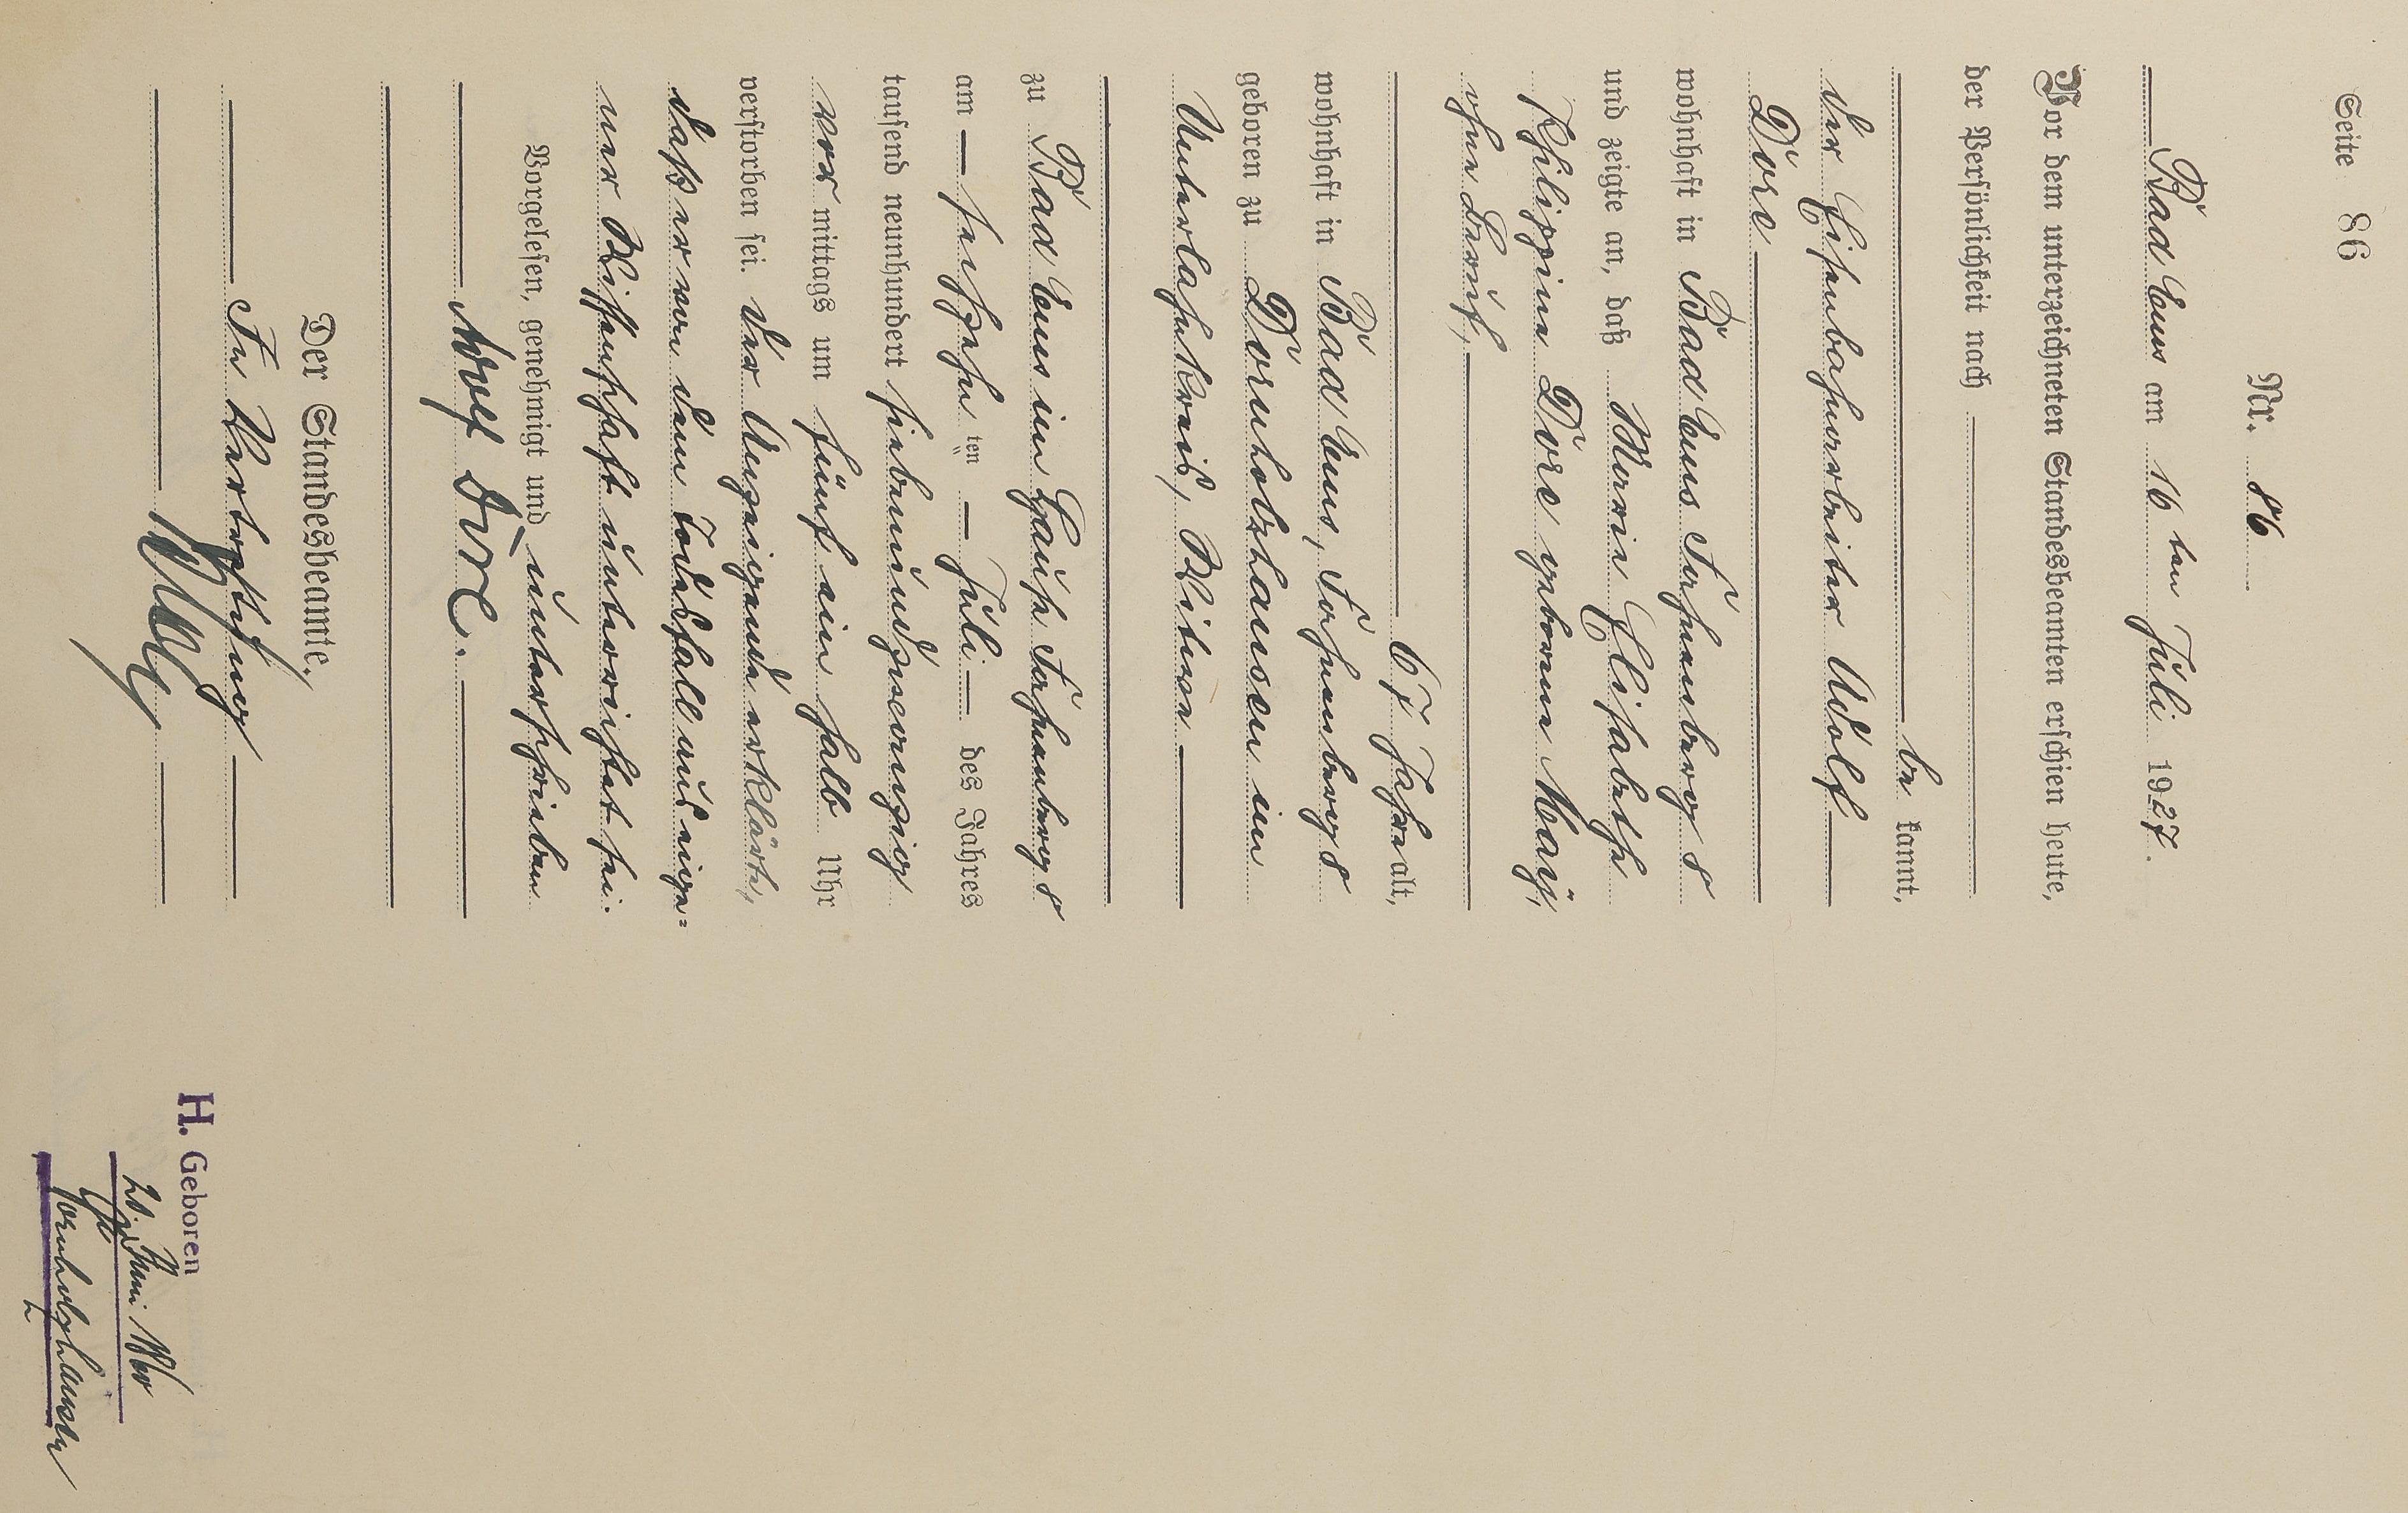 Seite 86
Nr. 86
Bad Ems am 16ten Juli 1927.
Vor dem unterzeichneten Standesbeamten erschien heute,
der Persönlichkeit nach
be kannt,
der Eisenbahnarbeiter Adolf
Dorc
wohnhaft in Bad Ems Fachbach
und zeigte an, daß Maria Elisabeth
Philippine Dorc geborene May,
ohne Beruf,
67 Jahre alt,
wohnhaft in Bad Ems,
geboren zu Dornholzhausen im
Unterlahnkreis, Witwe
zu Bad Ems im Hause
am sechzehn ten Juli des Jahres
tausend neunhundert siebenundzwanzig
vor mittags um fünf ein halb Uhr
verstorben sei. Der Anzeigende erklärte,
daß er von dem Todesfall aus eige=
ner Wissenschaft unterrichtet sei.
Vorgelesen, genehmigt und unterschrieben
Adolf
Der Standesbeamte.
In Vertretung
H. Geboren
Dornholzhausen